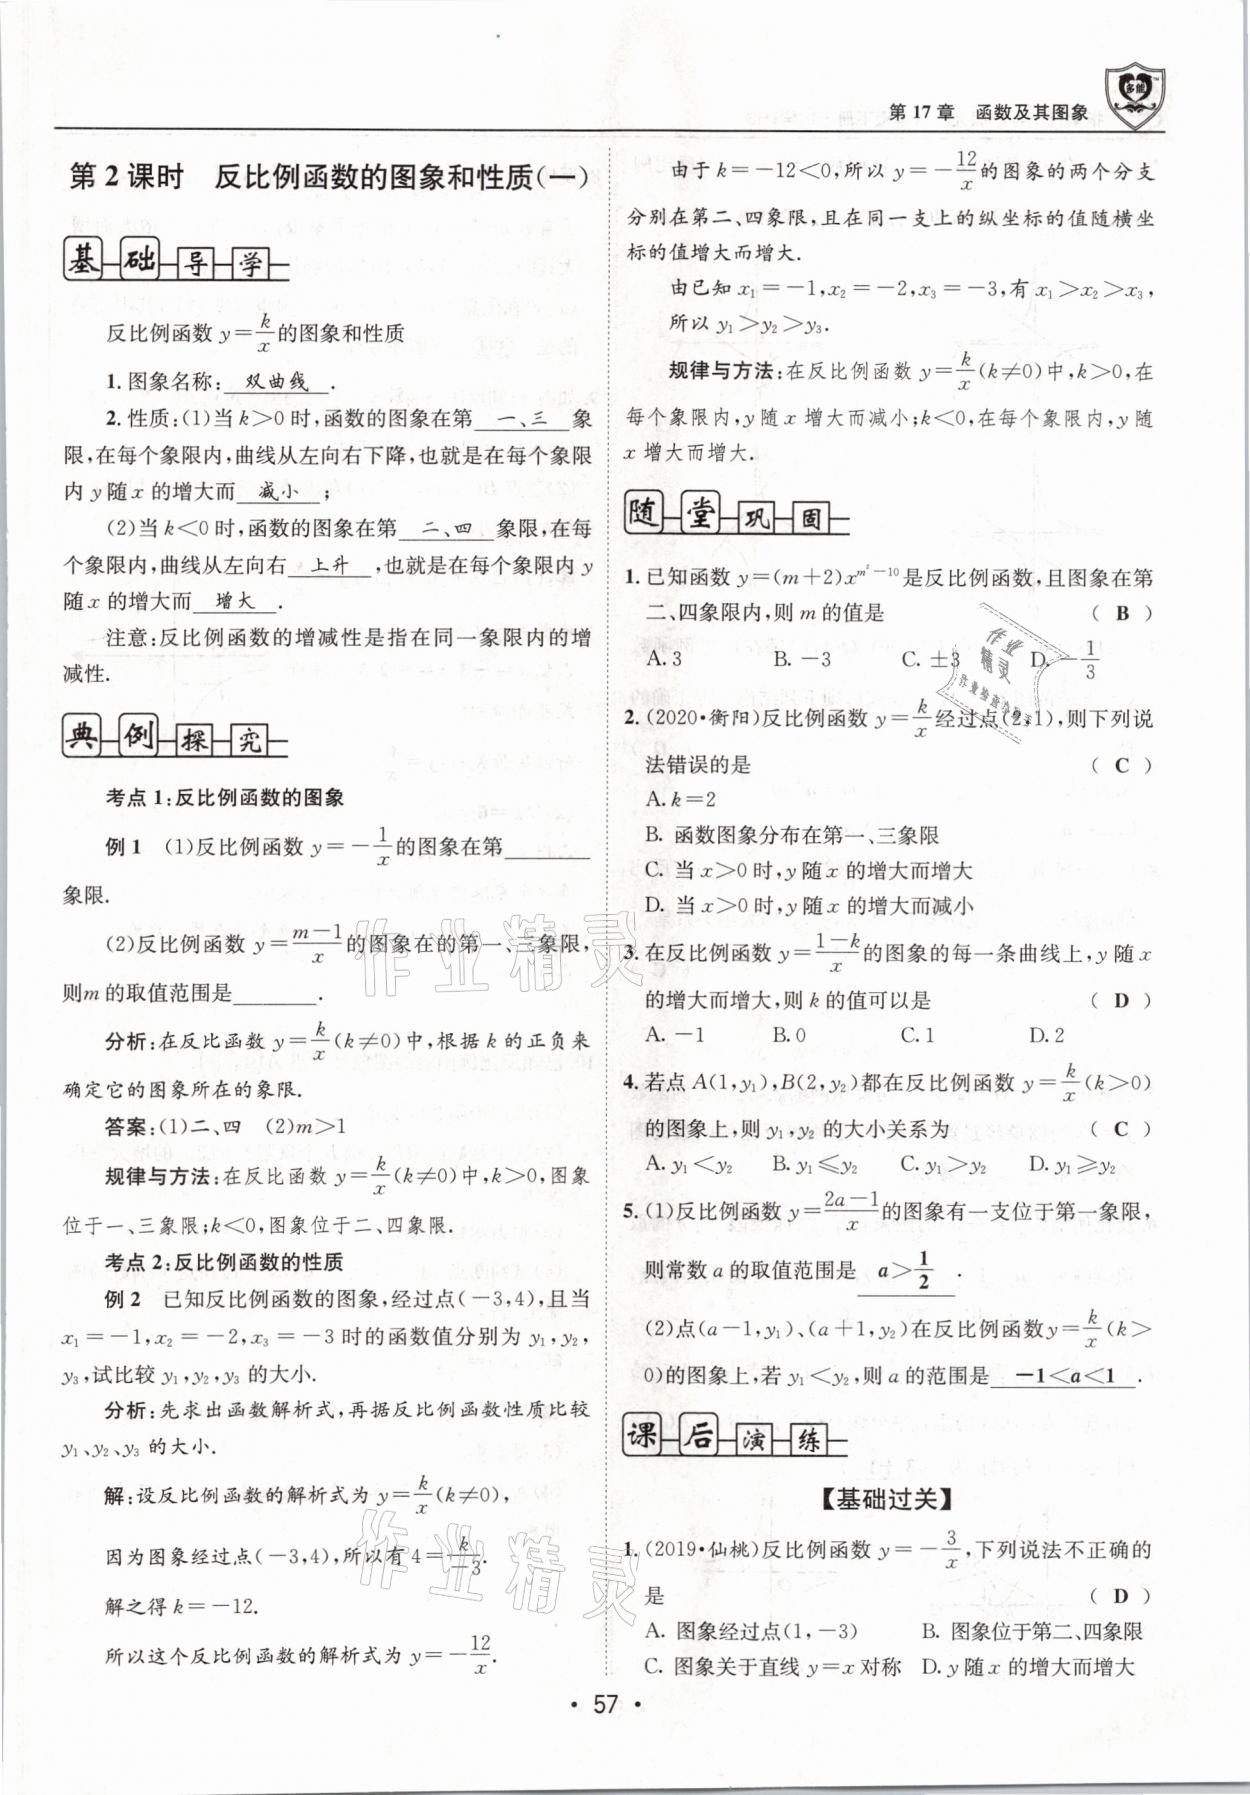 第17章 函数及其图象
多能
第2课时 反比例函数的图象和性质(一)
基础导学
反比例函数 y=k/x的图象和性质
1. 图象名称: 双曲线 .
2. 性质:(1)当 k>0 时,函数的图象在第 一、三 象
限,在每个象限内,曲线从左向右下降,也就是在每个象限
内 y 随 x 的增大而 减小 ;
(2)当 k<0 时,函数的图象在第 二、四 象限,在每
个象限内,曲线从左向右 上升 ,也就是在每个象限内 y
随 x 的增大而 增大 .
注意:反比例函数的增减性是指在同一象限内的增
减性.
典例探究
考点1:反比例函数的图象
例1 (1)反比例函数 y=-1/x的图象在第________
象限.
(2)反比例函数 y=(m-1)/x的图象在的第一、三象限,
则m 的取值范围是________.
分析:在反比函数 y=k/x(k≠0)中,根据 k 的正负来
确定它的图象所在的象限.
答案:(1)二、四 (2)m>1
规律与方法:在反比函数 y=k/x(k≠0)中,k>0,图象
位于一、三象限;k<0,图象位于二、四象限.
考点2:反比例函数的性质
例2 已知反比例函数的图象,经过点(-3,4),且当
x₁=-1,x₂=-2,x₃=-3 时的函数值分别为 y₁,y₂,
y₃,试比较 y₁,y₂,y₃ 的大小.
分析:先求出函数解析式,再据反比例函数性质比较
y₁、y₂、y₃ 的大小.
解:设反比例函数的解析式为 y=k/x(k≠0),
因为图象经过点(-3,4),所以有 4=k/-3.
解之得 k=-12.
所以这个反比例函数的解析式为 y=-12/x.
由于 k=-12<0,所以 y=-12/x的图象的两个分支
分别在第二、四象限,且在同一支上的纵坐标的值随横坐
标的值增大而增大.
由已知 x₁=-1,x₂=-2,x₃=-3,有 x₁>x₂>x₃,
所以 y₁>y₂>y₃.
规律与方法:在反比例函数 y=k/x(k≠0)中,k>0,在
每个象限内,y 随 x 增大而减小;k<0,在每个象限内,y 随
x 增大而增大.
随堂巩固
1. 已知函数 y=(m+2)x^(m²-10)是反比例函数,且图象在第
二、四象限内,则 m 的值是 ( B )
A. 3 B. -3 C. ±3 D. -1/3
2. (2020·衡阳)反比例函数 y=k/x经过点(2,1),则下列说
法错误的是 ( C )
A. k=2
B. 函数图象分布在第一、三象限
C. 当 x>0 时,y随x的增大而增大
D. 当 x>0 时,y随x的增大而减小
3. 在反比例函数 y=(1-k)/x的图象的每一条曲线上,y 随 x
的增大而增大,则 k 的值可以是 ( D )
A. -1 B. 0 C. 1 D. 2
4. 若点 A(1,y₁),B(2,y₂)都在反比例函数 y=k/x(k>0)
的图象上,则 y₁,y₂ 的大小关系为 ( C )
A. y₁<y₂ B. y₁≤y₂ C. y₁>y₂ D. y₁≥y₂
5. (1)反比例函数 y=(2a-1)/x的图象有一支位于第一象限,
则常数 a 的取值范围是 a>1/2 .
(2)点(a-1,y₁)、(a+1,y₂)在反比例函数y=k/x(k>
0)的图象上,若 y₁<y₂,则 a 的范围是 -1<a<1 .
课后演练
【基础过关】
1. (2019·仙桃)反比例函数 y=-3/x,下列说法不正确的
是 ( D )
A. 图象经过点(1,-3) B. 图象位于第二、四象限
C. 图象关于直线 y=x 对称 D. y随 x 的增大而增大
作业精灵
作业精灵
作业
精灵
作业检查小帮手
·57·